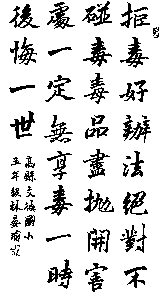 拒毒好辦法絕對不
碰毒毒品盡拋開害
處一定無享毒一時
後悔一世
高縣文國小
五年級林